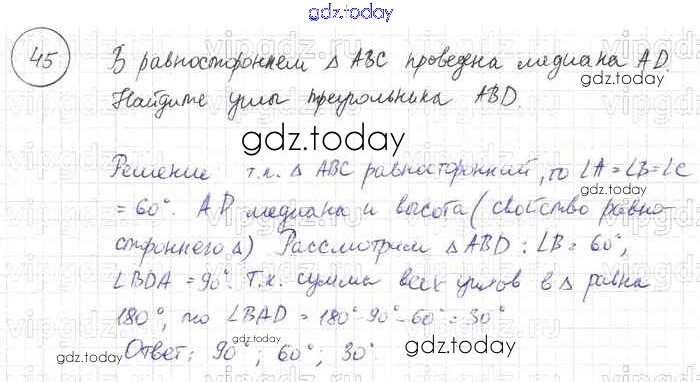 gdz.today
45 В равностороннем △ ABC проведена медиана AD.
gdz.today
Найдите углы треугольника ABD.
gdz.today
Решение т.к. △ ABC равносторонний, то ∠A = ∠B = ∠C
gdz.today
= 60°. AD медиана и высота (свойство равно-
стороннего △) Рассмотрим △ ABD : ∠B = 60°,
∠BDA = 90°. Т.к. сумма всех углов в △ равна
180°, то ∠BAD = 180° - 90° - 60° = 30°
gdz.today
Ответ: 90° ; 60° ; 30°.
gdz.today
gdz.today